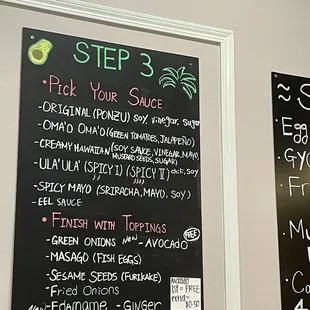 STEP 3
• PICK YOUR SAUCE
- ORIGINAL (PONZU) SOY, vinegar, sugar
- OMA'O OMA'O (GREEN TOMATOES, JALAPEÑO)
- CREAMY HAWAIIAN (SOY SAUCE, VINEGAR, MAYO,
MUSTARD SEEDS, SUGAR)
- ULA'ULA' (SPICY I) (SPICY II) chili, soy
- SPICY MAYO (SRIRACHA, MAYO, SOY)
- EEL SAUCE
• FINISH WITH TOPPINGS
- GREEN ONIONS NEW - AVOCADO FREE
- MASAGO (FISH EGGS)
- SESAME SEEDS (FURIKAKE)
- Fried Onions
NEW - Edamame - GINGER
AVOCADO
1st = FREE
extra =
$0.50
S
Egg
Fr